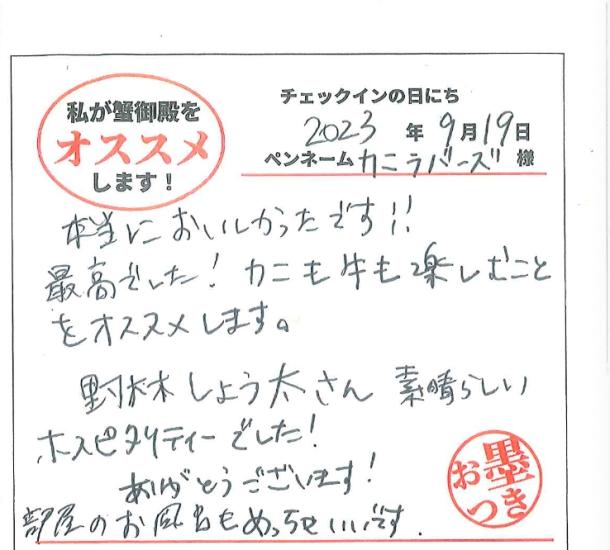 私が蟹御殿を
オススメ
します!
チェックインの日にち
2023 年 9月19日
ペンネーム カニラバーズ 様
本当においしかったです!!
最高でした!カニも牛も楽しむこと
をオススメします。
野林しょう太さん 素晴らしい
ホスピタリティーでした!
ありがとうございます!
部屋のお風呂もめっちゃいいです.
お墨
つき